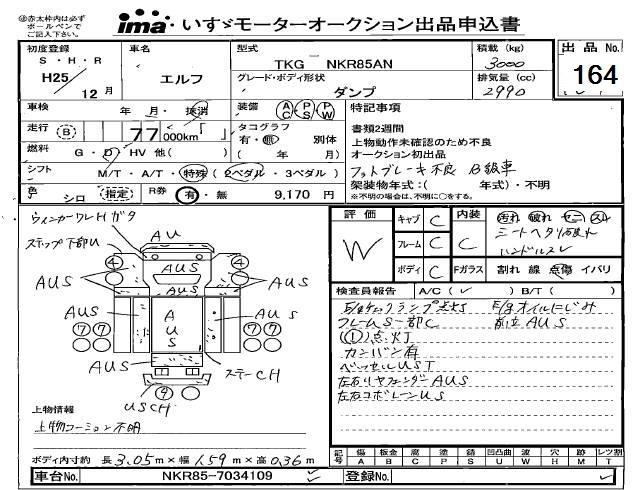 赤太枠内は必ず
ボールペンで
ご記入下さい。
ima いすゞモーターオークション出品申込書
初度登録 車名 型式 積載(kg) 出品No.
S・H・R
H25 12月 エルフ TKG － NKR85AN 3000 164
グレード・ボディ形状 排気量(cc)
ダンプ 2990
車検 年 月・抹消 装備 AC・PS・PW 特記事項
走行 B 77000km「 」 タコグラフ 有・無 別体 書類2週間
( 年 月) 上物動作未確認のため不良
燃料 G・D・HV 他( ) オークション初出品
シフト M/T・A/T・特殊(2ペダル・3ペダル) フットブレーキ不良 B級車
架装物年式:( 年式)・不明
※不明の場合は、不明に○をする。
色 シロ 指定 R券 有・無 9,170円
ウィンカーワレHガタ
ステップ下部U
AU
AUS
AUS
AUS
AUS
AUS
AUS
AUS
④ ④
⑦⑦ ⑦⑦
AUS
ステーCH
④
USCH
上物情報
ボディ内寸約 長3.05m×幅1.59m×高0.36m
評価 W
キャブ C
フレーム C
ボディ C
内装 C
Fガラス
汚れ 破れ ヤニ スレ
シートヘタリ
ハンドルスレ
割れ 線 点傷 イバリ
検査員報告 A/C(✓) B/T( )
E/gチェックランプ点灯 E/gオイルにじみ
フレームUS一部C AUS
(①)点灯
カンバン有
ベッセルUST
左右リヤフェンダーAUS
左右コボレーンUS
記号 傷 板金 腐 塗 錆 凹凸曲 波 穴 跡 レツ割
A B C P S U W H M T
車台No. NKR85-7034109 登録No.